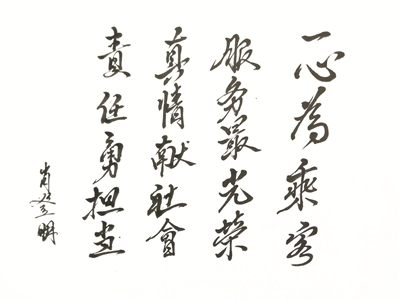 一心為乘客
服务最光荣
真情献社會
責任勇担当
肖楚明